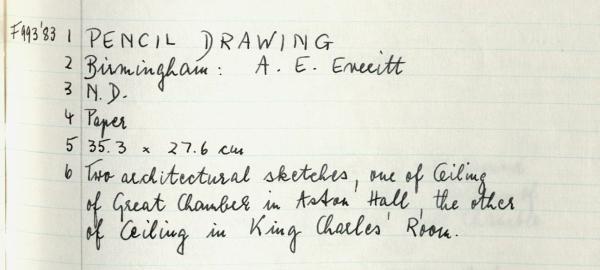 F993'83 1 PENCIL DRAWING
2 Birmingham: A. E. Everitt
3 N.D.
4 Paper
5 35.3 x 27.6 cm
6 Two architectural sketches, one of Ceiling
of Great Chamber in Aston Hall, the other
of Ceiling in King Charles' Room.